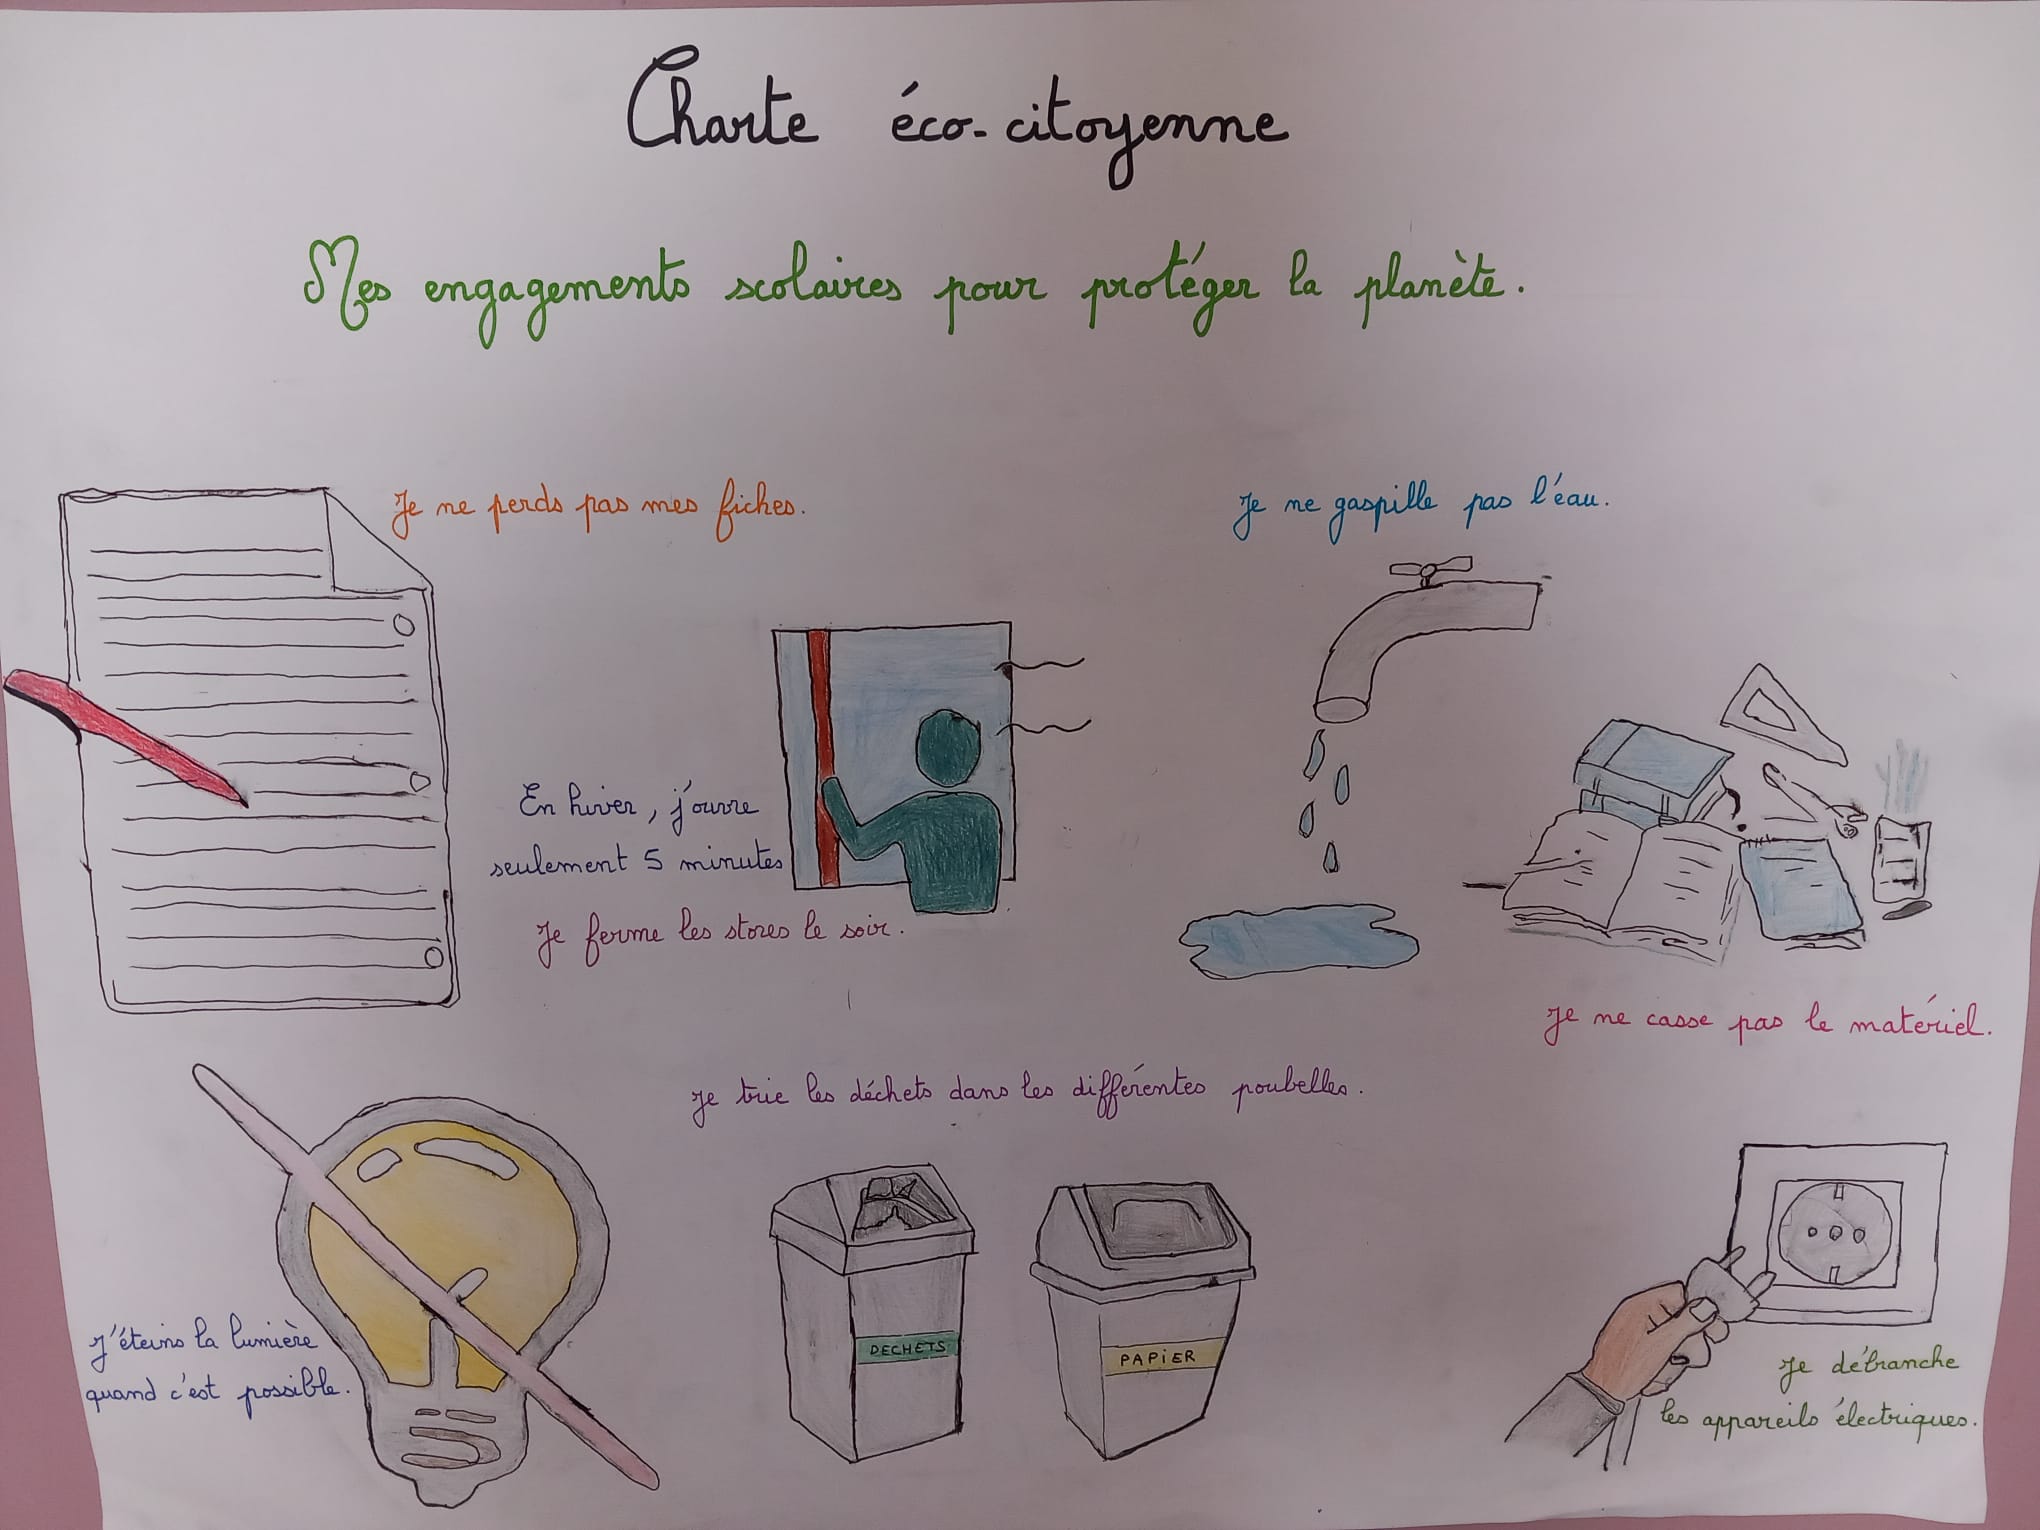 Charte éco-citoyenne
Mes engagements scolaires pour protéger la planète.
Je ne perds pas mes fiches.
Je ne gaspille pas l'eau.
En hiver, j'ouvre
seulement 5 minutes
Je ferme les stores le soir.
Je ne casse pas le matériel.
Je trie les déchets dans les différentes poubelles.
DECHETS
PAPIER
J'éteins la lumière
quand c'est possible.
Je débranche
les appareils électriques.